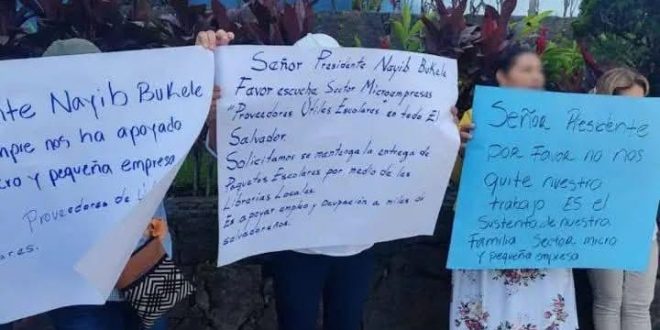 nte Nayib Bukele
empre nos ha apoyado
cro y pequeña empresa
Proveedores de
ares.
Señor Presidente Nayib Bukele
Favor escuche Sector Microempresas
"Proveedores Utiles Escolares" en todo El
Salvador.
Solicitamos se mantenga la entrega de
Paquetes Escolares por medio de las
Librerias Locales.
Es apoyar empleo y Ocupación a miles de
salvadoreños.
SEÑOR PResidente
POR FAVOR NO NOS
quite nuestro
trabajo ES el
Sustento de nuestra
Familia SECTOR micro
y pequeña empresa